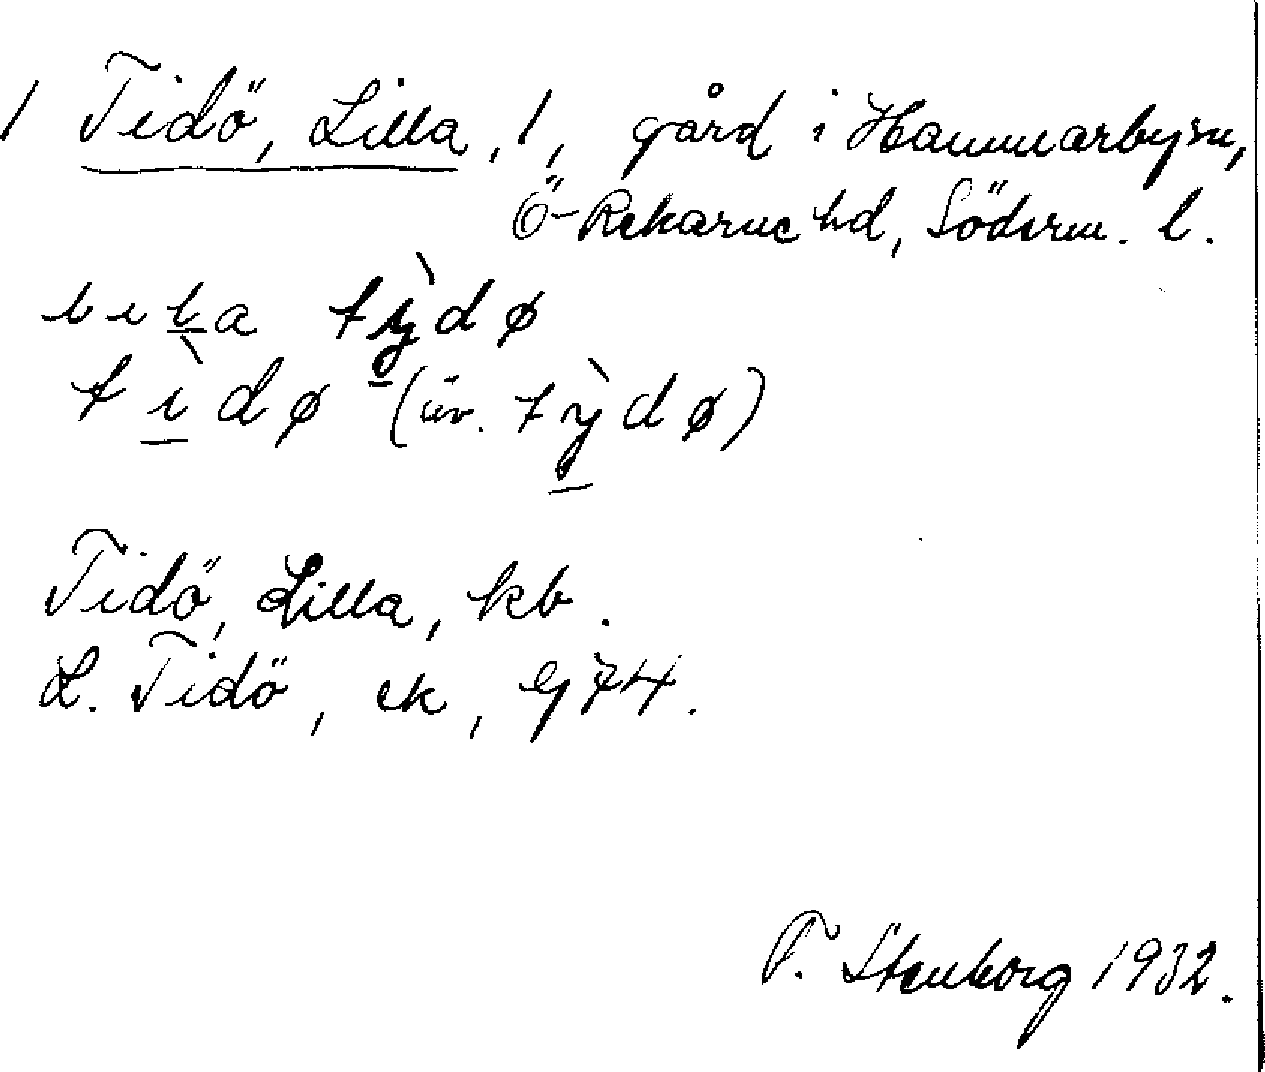 1 Tidö, Lilla, 1, gård i Hammarby sn,
Ö-Rekarne hd, Söderm. l.
lila tỳdø
tìdø (äv. tỳdø)
Tidö, Lilla, kb.
L. Tidö, ek, Gj 74.
T. Stenborg 1932.